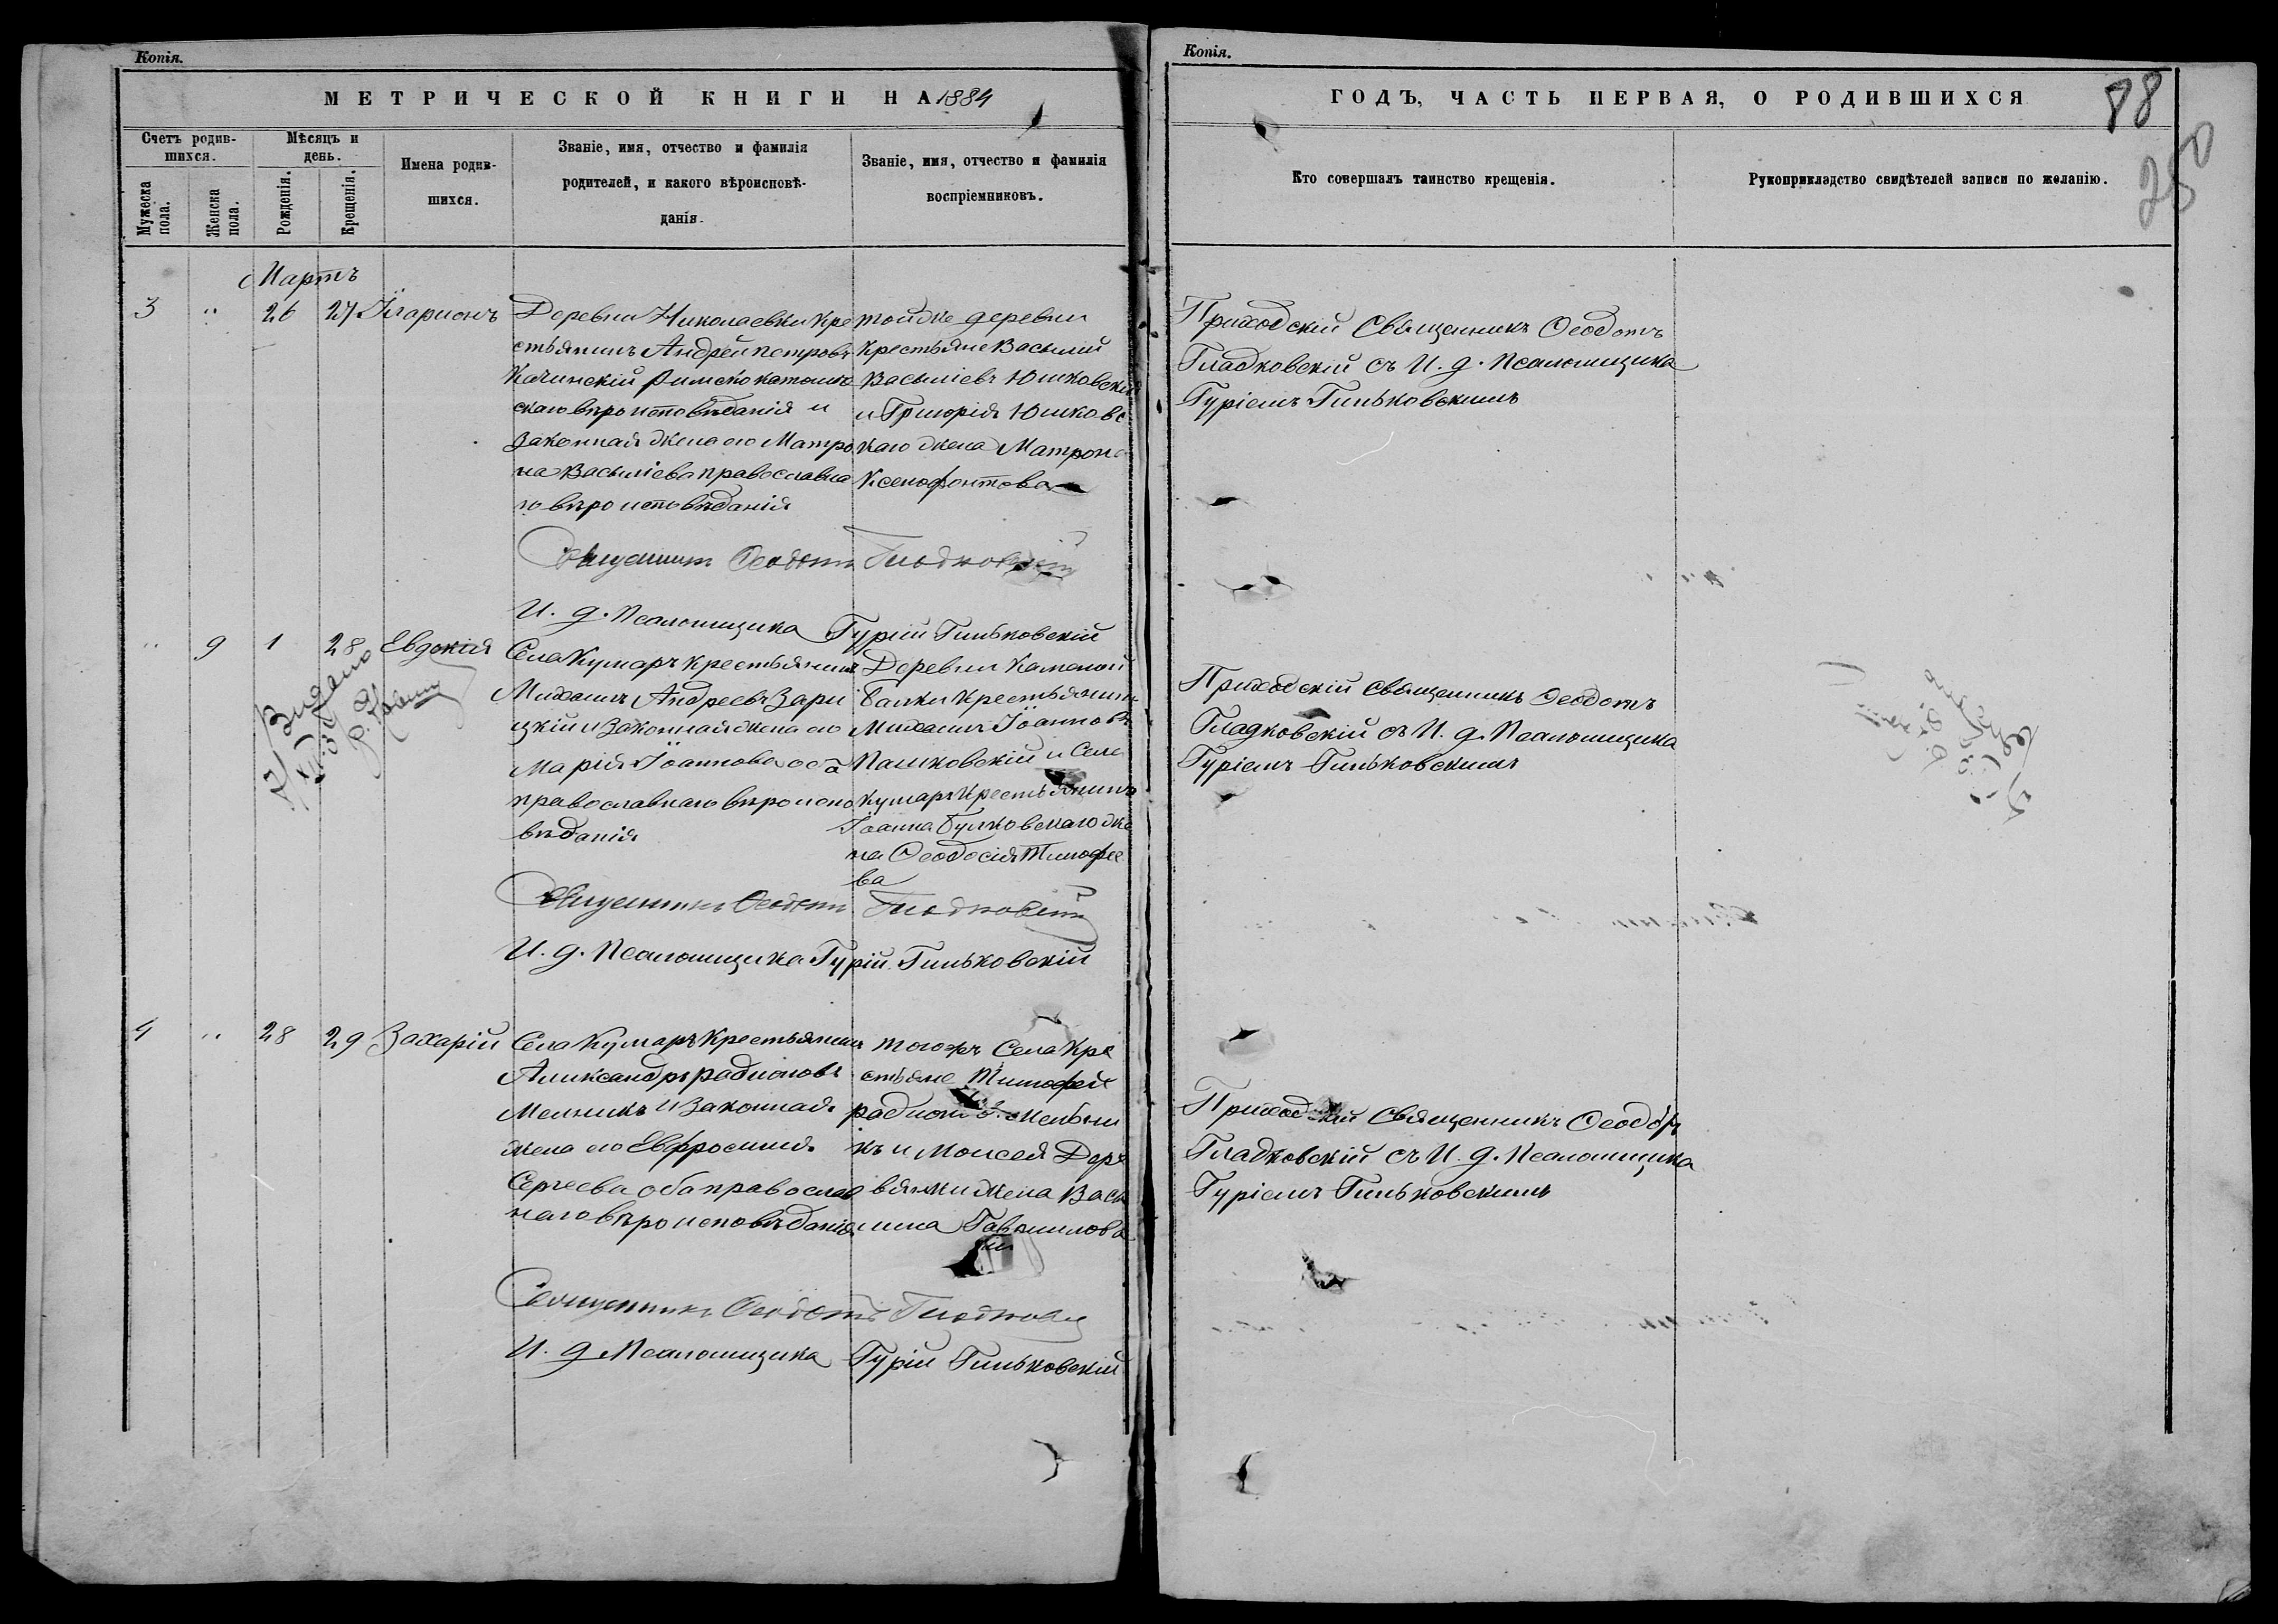 Копія.
МЕТРИЧЕСКОЙ КНИГИ НА 1884
Счетъ родив-
шихся.
Мужеска
пола.
Женска
пола.
Мѣсяцъ и
день.
Рожденія.
Крещенія.
Имена родив-
шихся.
Званіе, имя, отчество и фамилія
родителей, и какого вѣроисповѣ-
данія.
Званіе, имя, отчество и фамилія
воспріемниковъ.
Мартъ
3 " 26 27 Иларіонъ
Деревни Николаевки кре
стьянинъ Андрей Петровъ
Качинскій Римско католиче
скаго вѣроисповѣданія и
законная жена его Матро
на Василіева православна
го вѣроисповѣданія
тойже деревни
крестьяне Василій
Василіевъ Юшковскій
и Григорія Юшковс
каго жена Матрона
Ксенофонтова
Священникъ Ѳеодотъ Гладковскій
И. д. Псаломщика Гурій Гильковскій
" 9 1 28 Евдокія
Села Кумаръ крестьянинъ
Михаилъ Андреевъ Зари
цкій и законная жена его
Марія Іоаннова оба
православнаго вѣроиспо
вѣданія
Деревни Каменой
Балки крестьянинъ
Михаилъ Іоанновъ
Пашковскій и Села
Кумаръ крестьянина
Іоанна Булковскаго же
на Ѳеодосія Тимофее
ва
Выдано
Священникъ Ѳеодотъ Гладковскій
И. д. Псаломщика Гурій Гильковскій
4 " 28 29 Захарій
Села Кумаръ крестьянинъ
Александръ Радионовъ
Мельникъ и законная
жена его Евфросинія
Сергеева оба православ
наго вѣроисповѣданія
тогожъ Села кре
стьяне Тимофей
Мельни
къ и Моисея Дере
вянки жена Васи
лиса Гавриилова
Священникъ Ѳеодотъ
И. д. Псаломщика Гурій Гильковскій
Копія.
ГОДЪ, ЧАСТЬ ПЕРВАЯ, О РОДИВШИХСЯ
88
Кто совершалъ таинство крещенія.
Рукоприкладство свидѣтелей записи по желанію.
Приходскій Священникъ Ѳеодотъ
Гладковскій съ И. д. Псаломщика
Гуріемъ Гильковскимъ
Приходскій Священникъ Ѳеодотъ
Гладковскій съ И. д. Псаломщика
Гуріемъ Гильковскимъ
Приходскій Священникъ Ѳеодотъ
Гладковскій съ И. д. Псаломщика
Гуріемъ Гильковскимъ